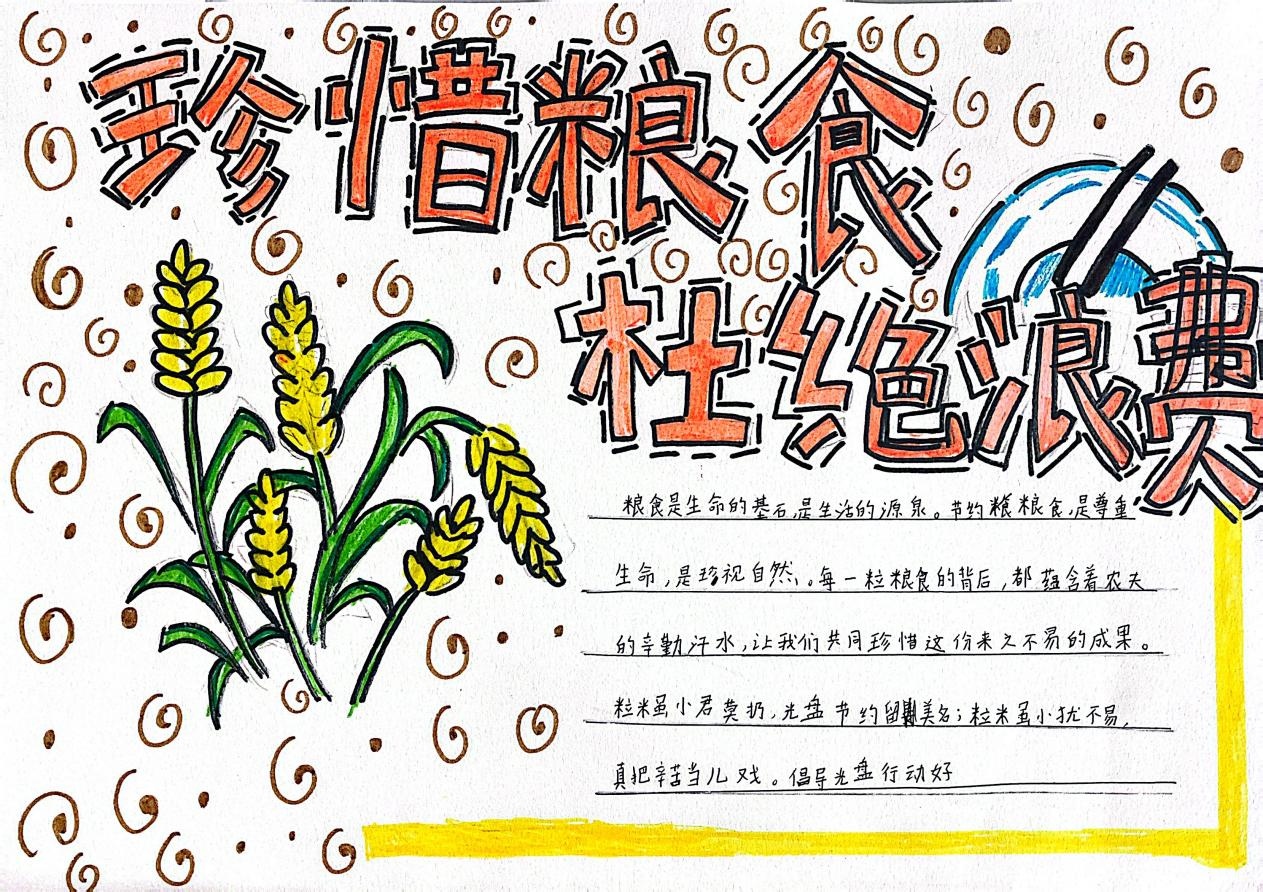 珍惜粮食
杜绝浪费
粮食是生命的基石,是生活的源泉。节约粮食,是尊重
生命,是珍视自然、。每一粒粮食的背后,都蕴含着农夫
的辛勤汗水,让我们共同珍惜这份来之不易的成果。
粒米虽小君莫扔,光盘节约留美名;粒米虽小犹不易,
真把辛苦当儿戏。倡导光盘行动好